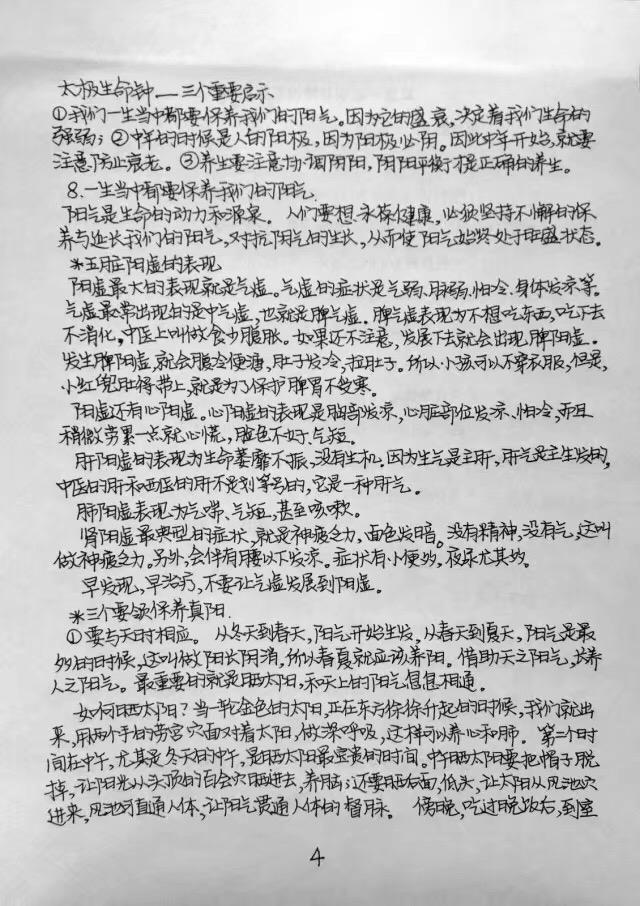 太极生命钟——三个重要启示
①我们一生当中都要保养我们的阳气。因为它的盛衰,决定着我们生命的
强弱;②中年的时候是人的阳极,因为阳极必阴。因此中年开始,就要
注意防止衰老。③养生要注意协调阴阳,阴阳平衡才是正确的养生。
8.一生当中都要保养我们的阳气
阳气是生命的动力和源泉。人们要想永葆健康,必须坚持不懈的保
养与延长我们的阳气,对抗阴气的生长,从而使阳气始终处于旺盛状态。
*五脏阳虚的表现
阳虚最大的表现就是气虚。气虚的症状是气弱、形弱、怕冷、身体发凉等。
气虚最常出现的是中气虚,也就是脾气虚。脾气虚表现为不想吃东西,吃下去
不消化,中医上叫做食少腹胀。如果还不注意,发展下去就会出现脾阳虚。
发生脾阳虚,就会腹冷便溏,肚子发冷,拉肚子。所以小孩可以不穿衣服,但是,
小红兜肚得带上,就是为了保护脾胃不受寒。
阳虚还有心阳虚。心阳虚的表现是胸部发凉,心脏部位发凉、怕冷,而且
稍微劳累一点就心慌,脸色不好,气短。
肝阳虚的表现为生命萎靡不振,没有生机。因为生气是主肝,肝气是主生发的,
中医的肝和西医的肝不是划等号的,它是一种肝气。
肺阳虚表现为气喘、气短,甚至咳嗽。
肾阳虚最典型的症状,就是神疲乏力,面色发暗。没有精神,没有气,这叫
做神疲乏力。另外,会伴有腰以下发凉。症状有小便多,夜尿尤其多。
早发现,早治疗,不要让气虚发展到阳虚。
*三个要领保养真阳
①要与天时相应。从冬天到春天,阳气开始生发,从春天到夏天,阳气是最
多的时候,这叫做阳长阴消,所以春夏就应该养阳。借助天之阳气,长养
人之阳气。最重要的就是晒太阳,和天上的阳气息息相通。
如何晒太阳?当一轮金色的太阳,正在东方徐徐升起的时候,我们就出
来,用两个手的劳宫穴面对着太阳,做深呼吸,这样可以养心和肺。第二个时
间在中午,尤其是冬天的中午,是晒太阳最宝贵的时间。中午晒太阳要把帽子脱
掉,让阳光从头顶的百会穴晒进去,养脑;还要晒后面,低头,让太阳从风池穴
进来,风池可直通人体,让阳气贯通人体的督脉。傍晚,吃过晚饭后,到室
4